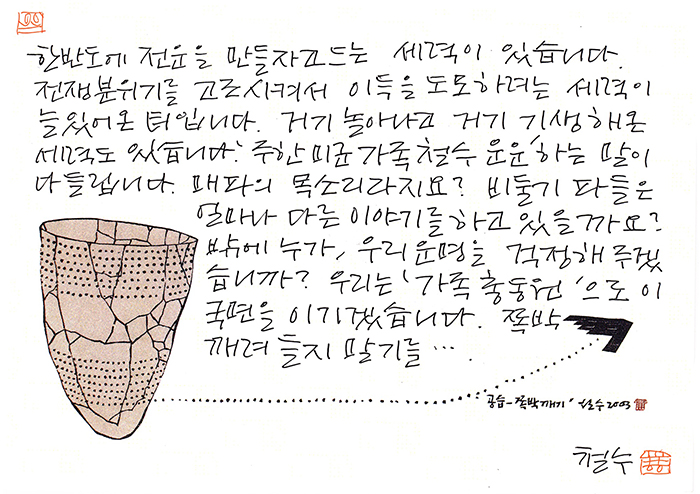 한반도에 전운을 만들자고 드는 세력이 있습니다.
전쟁분위기를 고조시켜서 이득을 도모하려는 세력이
늘 있어온 터입니다. 거기 놀아나고 거기 기생해온
세력도 있습니다. '주한미군가족철수 운운'하는 말이
다 들립니다. 매파의 목소리라지요? 비둘기 파들은
얼마나 다른 이야기를 하고 있을까요?
밖에 누가, 우리 운명을 걱정해 주겠
습니까? 우리는 '가족 총동원'으로 이
국면을 이기겠습니다. 쪽박
깨려 들지 말기를…
공습-쪽박깨기' 철수 2003
철수